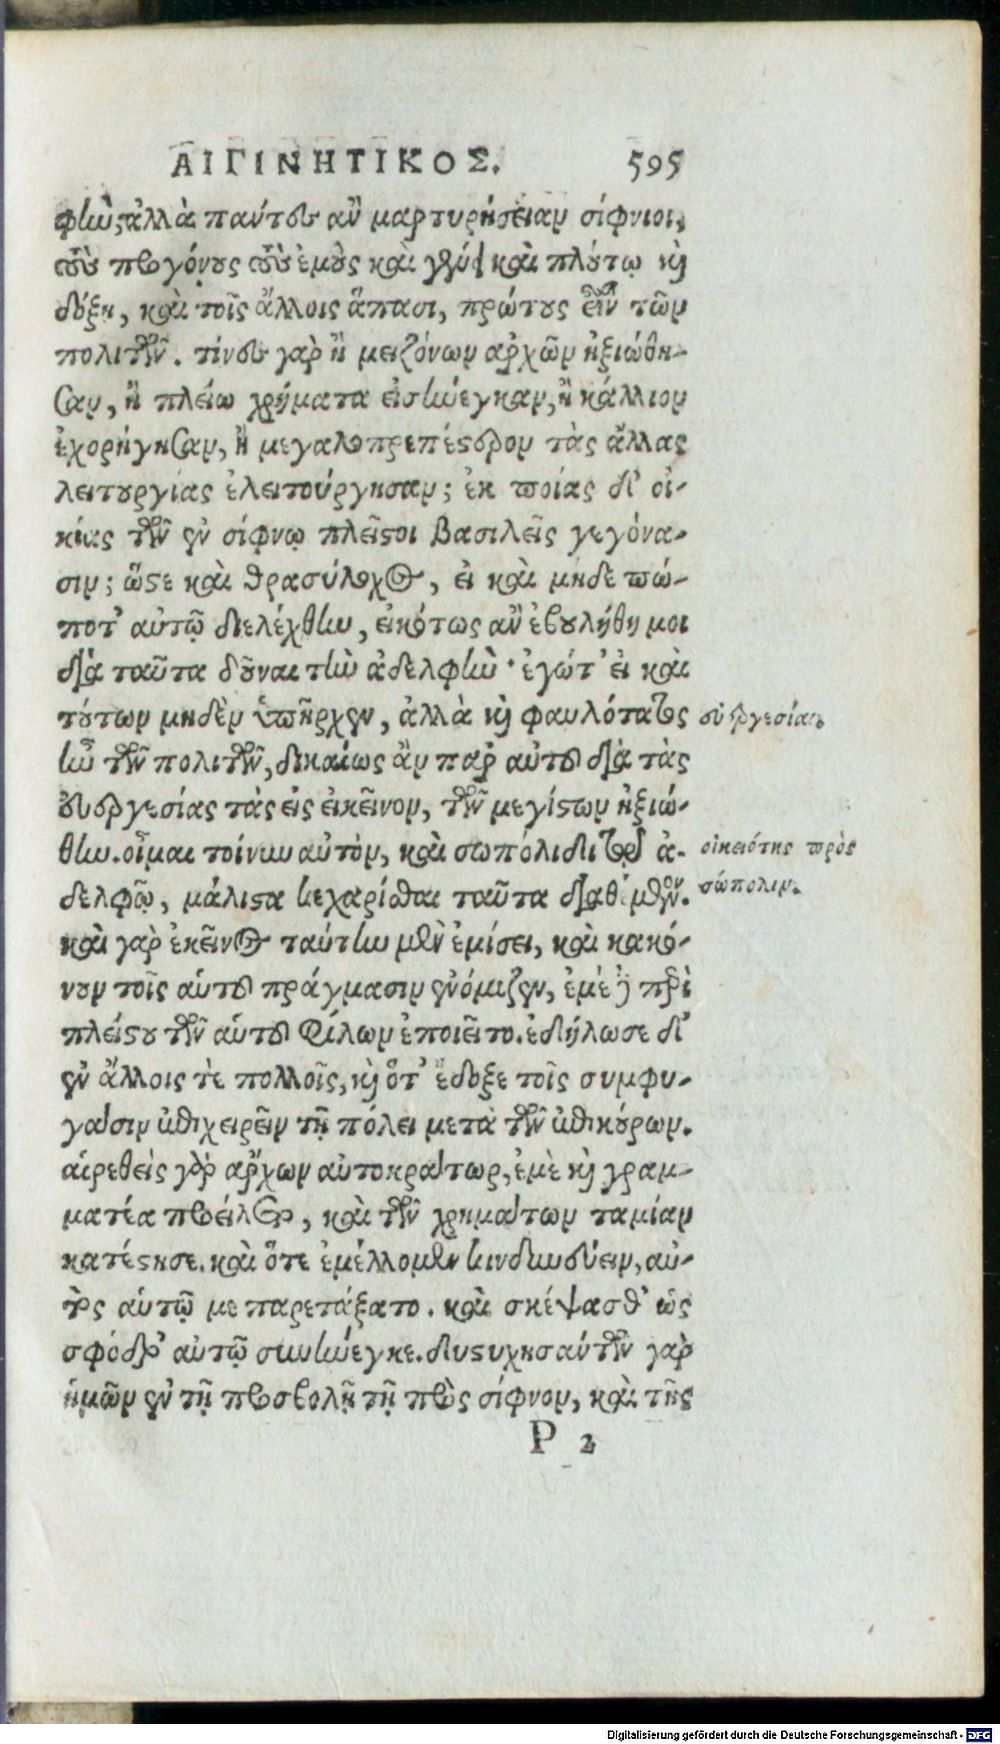 ΑΙΓΙΝΗΤΙΚΟΣ. 595
φήν; ἀλλὰ πάντες ἂν μαρτυρήσειαν σίφνιοι,
τοὺς προγόνους τοὺς ἐμοὺς καὶ γένει καὶ πλούτῳ καὶ
δόξῃ, καὶ τοῖς ἄλλοις ἅπασι, πρώτους εἶναι τῶν
πολιτῶν. τίνες γὰρ ἢ μειζόνων ἀρχῶν ἠξιώθη-
σαν, ἢ πλείω χρήματα εἰσήνεγκαν, ἢ κάλλιον
ἐχορήγησαν, ἢ μεγαλοπρεπέστερον τὰς ἄλλας
λειτουργίας ἐλειτούργησαν; ἐκ ποίας δ' οἰ-
κίας τῶν ἐν σίφνῳ πλεῖστοι βασιλεῖς γεγόνα-
σιν; ὥστε καὶ θρασύλοχος, εἰ καὶ μηδὲ πώ-
ποτ' αὐτῷ διελέχθην, εἰκότως ἂν ἐβουλήθη μοι
διὰ ταῦτα δοῦναι τὴν ἀδελφήν· ἐγώ τ' εἰ καὶ
τούτων μηδὲν ὑπῆρχεν, ἀλλὰ καὶ φαυλότατος
ἦν τῶν πολιτῶν, δικαίως ἂν παρ' αὐτοῦ διὰ τὰς
εὐεργεσίας τὰς εἰς ἐκεῖνον, τῶν μεγίστων ἠξιώ-
θην. οἶμαι τοίνυν αὐτὸν, καὶ σωπόλιδι τῷ ἀ-
δελφῷ, μάλιστα κεχαρίσθαι ταῦτα διαθέμενον.
καὶ γὰρ ἐκεῖνος ταύτην μὲν ἐμίσει, καὶ κακό-
νουν τοῖς αὑτοῦ πράγμασιν ἐνόμιζεν, ἐμὲ δὲ περὶ
πλείστου τῶν αὑτοῦ φίλων ἐποιεῖτο. ἐδήλωσε δ'
ἐν ἄλλοις τε πολλοῖς, καὶ ὅτ' ἔδοξε τοῖς συμφυ-
γάσιν ἐπιχειρεῖν τῇ πόλει μετὰ τῶν ἐπικούρων.
αἱρεθεὶς γὰρ ἄρχων αὐτοκράτωρ, ἐμὲ καὶ γραμ-
ματέα προείλετο, καὶ τῶν χρημάτων ταμίαν
κατέστησε. καὶ ὅτε ἐμέλλομεν κινδυνεύειν, αὐ-
τὸς αὑτῷ με παρετάξατο. καὶ σκέψασθ' ὡς
σφόδρ' αὐτῷ συνήνεγκε. δυστυχησάντων γὰρ
ἡμῶν ἐν τῇ προσβολῇ τῇ πρὸς σίφνον, καὶ τῆς
P 2
εὐεργεσίαι.
οἰκειότης πρὸς
σώπολιν.
Digitalisierung gefördert durch die Deutsche Forschungsgemeinschaft - DFG